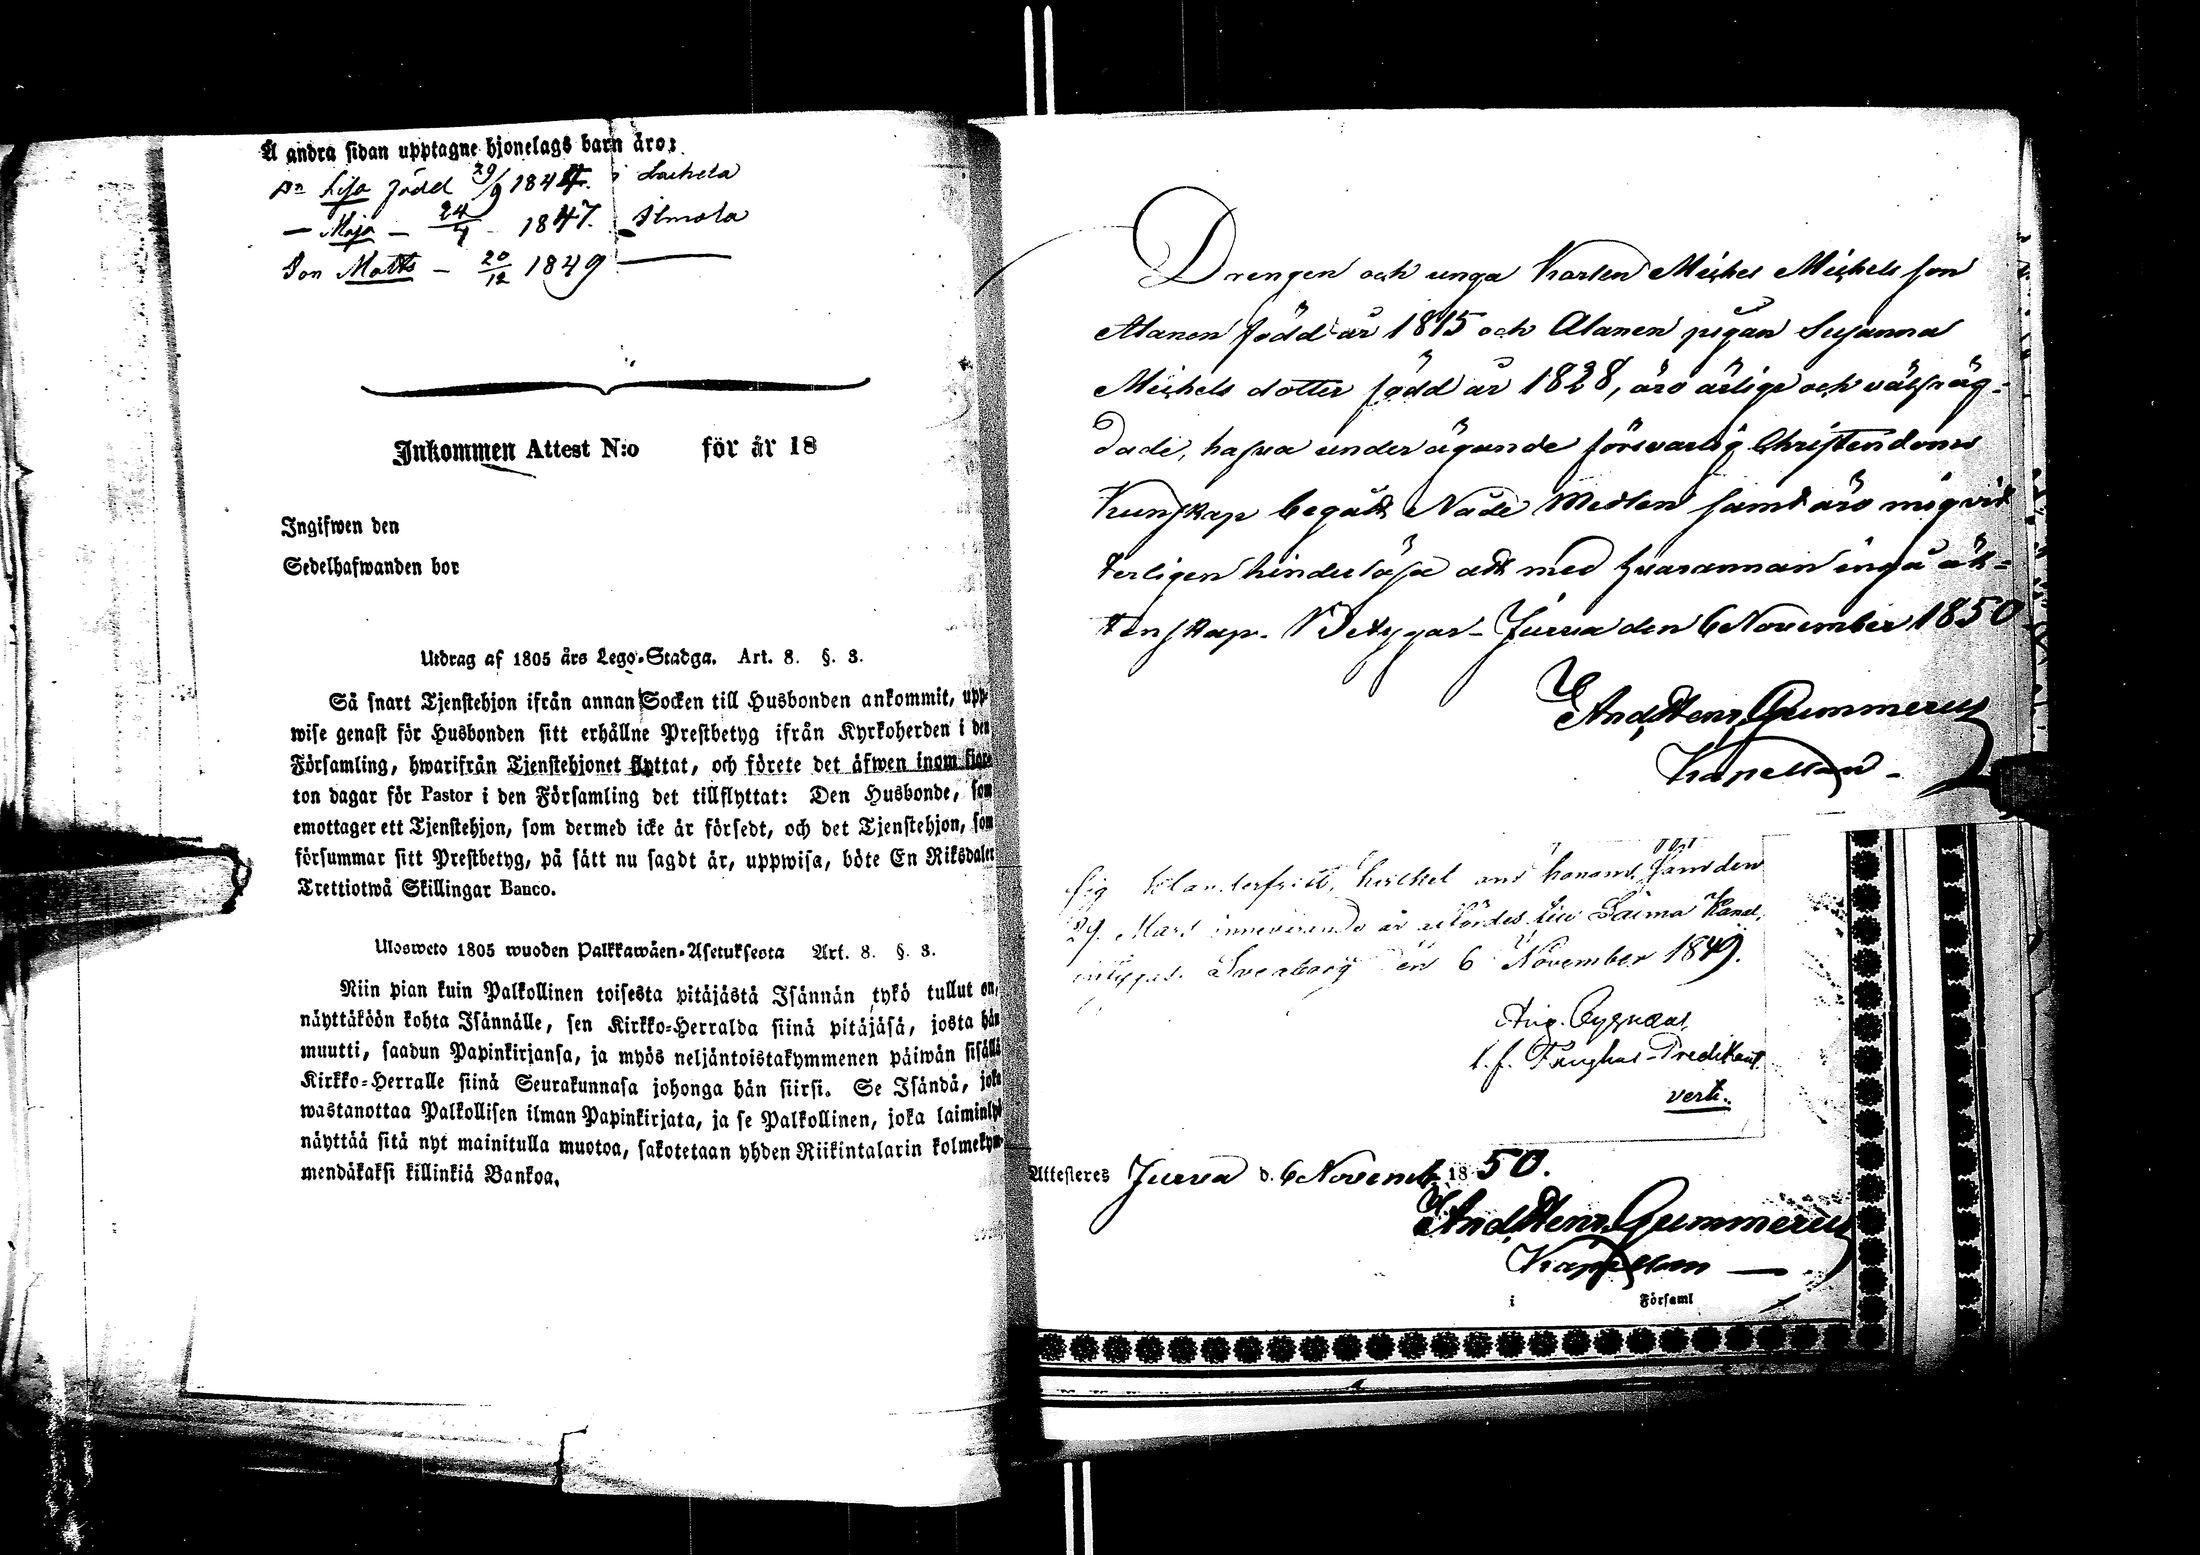 Å andra sidan upptagne hjonelags barn äro:
Lisa född 29/9 1844. i Laihela
— Maja — 24/4 - 1847. Ilmola
Son Matts — 20/12 1849 —
Inkommen Attest N:o för år 18
Ingifwen den
Sedelhafwanden bor
Utdrag af 1805 års Lego-Stadga. Art. 8. §. 3.
Så snart Tjenstehjon ifrån annan Socken till Husbonden ankommit, upp-
wise genast för Husbonden sitt erhållne Prestbetyg ifrån Kyrkoherden i den
Församling, hwarifrån Tjenstehjonet flyttat, och förete det äfwen inom fjor-
ton dagar för Pastor i den Församling det tillflyttat: Den Husbonde, som
emottager ett Tjenstehjon, som dermed icke är försedt, och det Tjenstehjon, som
försummar sitt Prestbetyg, på sätt nu sagdt är, uppwisa, böte En Riksdaler
Trettiotwå Skillingar Banco.
Ulosweto 1805 wuoden Palkkawäen-Asetuksesta Art. 8. §. 3.
Niin pian kuin Palkollinen toisesta pitäjästä Isännän tykö tullut on,
näyttäköön kohta Isännälle, sen Kirkko-Herralda siinä pitäjäsä, josta hän
muutti, saadun Papinkirjansa, ja myös neljäntoistakymmenen päiwän sisällä
Kirkko-Herralle siinä Seurakunnasa johonga hän siirsi. Se Isändä, joka
wastanottaa Palkollisen ilman Papinkirjata, ja se Palkollinen, joka laiminlyö
näyttää sitä nyt mainitulla muotoa, sakotetaan yhden Riikintalarin kolmekym-
mendäkaksi killinkiä Bankoa.
Drengen och unga Karlen Michel Michels son
Alanen född år 1815 och Alanen pigan Susanna
Michels dotter född år 1828, äro ärlige och välfräg-
dade, hafva under ägande försvarlig Christendoms
Kunskap begått Nåde Medlen samt äro mig vit
terligen hinderlösa att med hvarannan ingå äk-
tenskap. Betygar Jurva den 6 November 1850
And. Henr. Gummerus
Kapellan -
sig klanderfritt, hvilket om honom, som den
29. Mars innevarande år
intygas. Sveaborg den 6 November 1849.
Aug. Cygnæus,
t. f. Predikant.
vert.
Attesteres Jurva d. 6 Novemb. 1850.
And. Henr. Gummerus
Kapellan —
i Församl